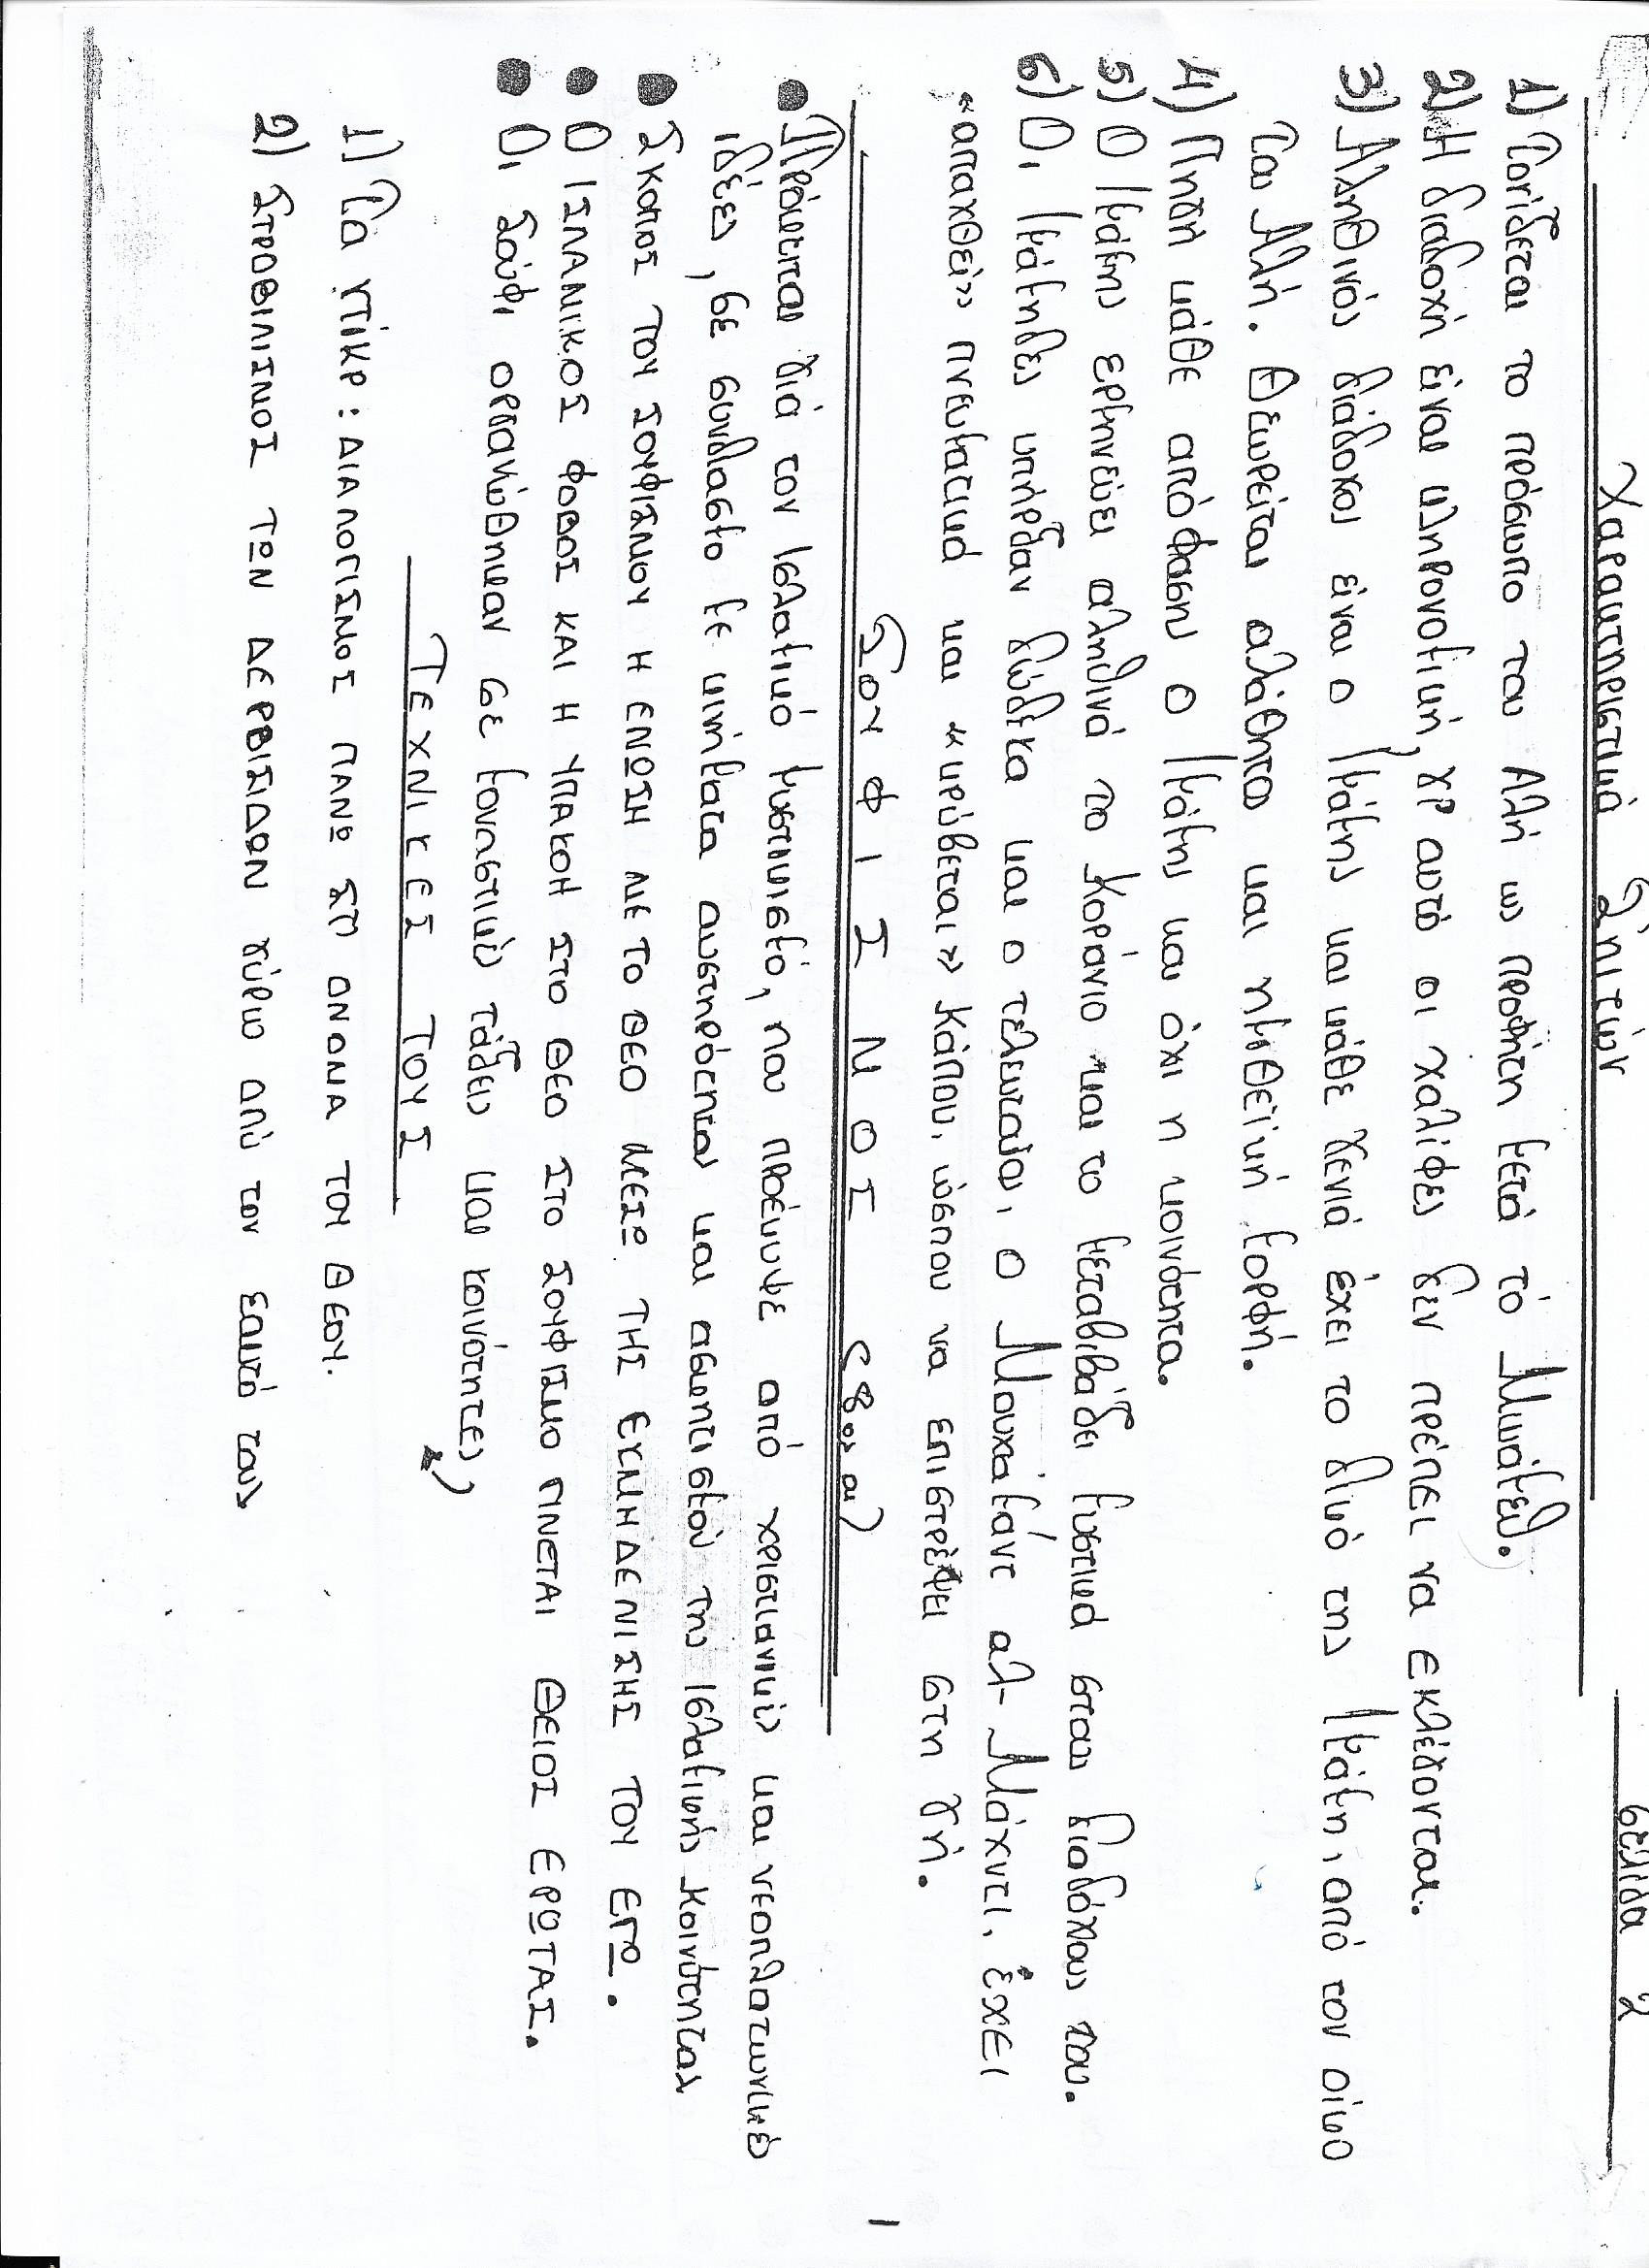 σελίδα 2
Χαρακτηριστικά Σηιτών
1) Τονίζεται το πρόσωπο του Αλή ως προφήτη μετά το Μωάμεθ.
2) Η διαδοχή είναι κληρονομική, γι' αυτό οι χαλίφες δεν πρέπει να εκλέγονται.
3) Αληθινός διάδοχος είναι ο Ιμάμης και κάθε γενιά έχει το δικό της Ιμάμη, από τον οίκο
του Αλή. Θεωρείται αλάθητο και ημιθεϊκή μορφή.
4) Πηγή κάθε απόφασης ο Ιμάμης και όχι η κοινότητα.
5) Ο Ιμάμης ερμηνεύει αληθινά το Κοράνιο και το μεταβιβάζει μυστικά στους διαδόχους του.
6) Οι Ιμάμηδες υπήρξαν δώδεκα και ο τελευταίος, ο Μουχαμάντ αλ-Μάχντι, έχει
«απαχθεί» πνευματικά και «κρύβεται» κάπου, ώσπου να επιστρέψει στη γή.
ΣΟΥΦΙΣΜΟΣ (8ος αι)
• Πρόκειται για τον ισλαμικό μυστικισμό, που προέκυψε από χριστιανικές και νεοπλατωνικές
ιδέες, σε συνδιασμό με κινήματα αυστηρότητας και ασκητισμού της ισλαμικής κοινότητας
• ΣΚΟΠΟΣ ΤΟΥ ΣΟΥΦΙΣΜΟΥ Η ΕΝΩΣΗ ΜΕ ΤΟ ΘΕΟ ΜΕΣΩ ΤΗΣ ΕΚΜΗΔΕΝΙΣΗΣ ΤΟΥ ΕΓΩ.
• Ο ΙΣΛΑΜΙΚΟΣ ΦΟΒΟΣ ΚΑΙ Η ΥΠΑΚΟΗ ΣΤΟ ΘΕΟ ΣΤΟ ΣΟΥΦΙΣΜΟ ΓΙΝΕΤΑΙ ΘΕΙΟΣ ΕΡΩΤΑΣ.
• Οι Σούφι οργανώθηκαν σε μοναστικές τάξεις και κοινότητες
ΤΕΧΝΙΚΕΣ ΤΟΥΣ
1) Το ντίκρ: ΔΙΑΛΟΓΙΣΜΟΣ ΠΑΝΩ ΣΤΟ ΟΝΟΜΑ ΤΟΥ ΘΕΟΥ.
2) ΣΤΡΟΒΙΛΙΣΜΟΣ ΤΩΝ ΔΕΡΒΙΣΙΔΩΝ γύρω από τον εαυτό τους